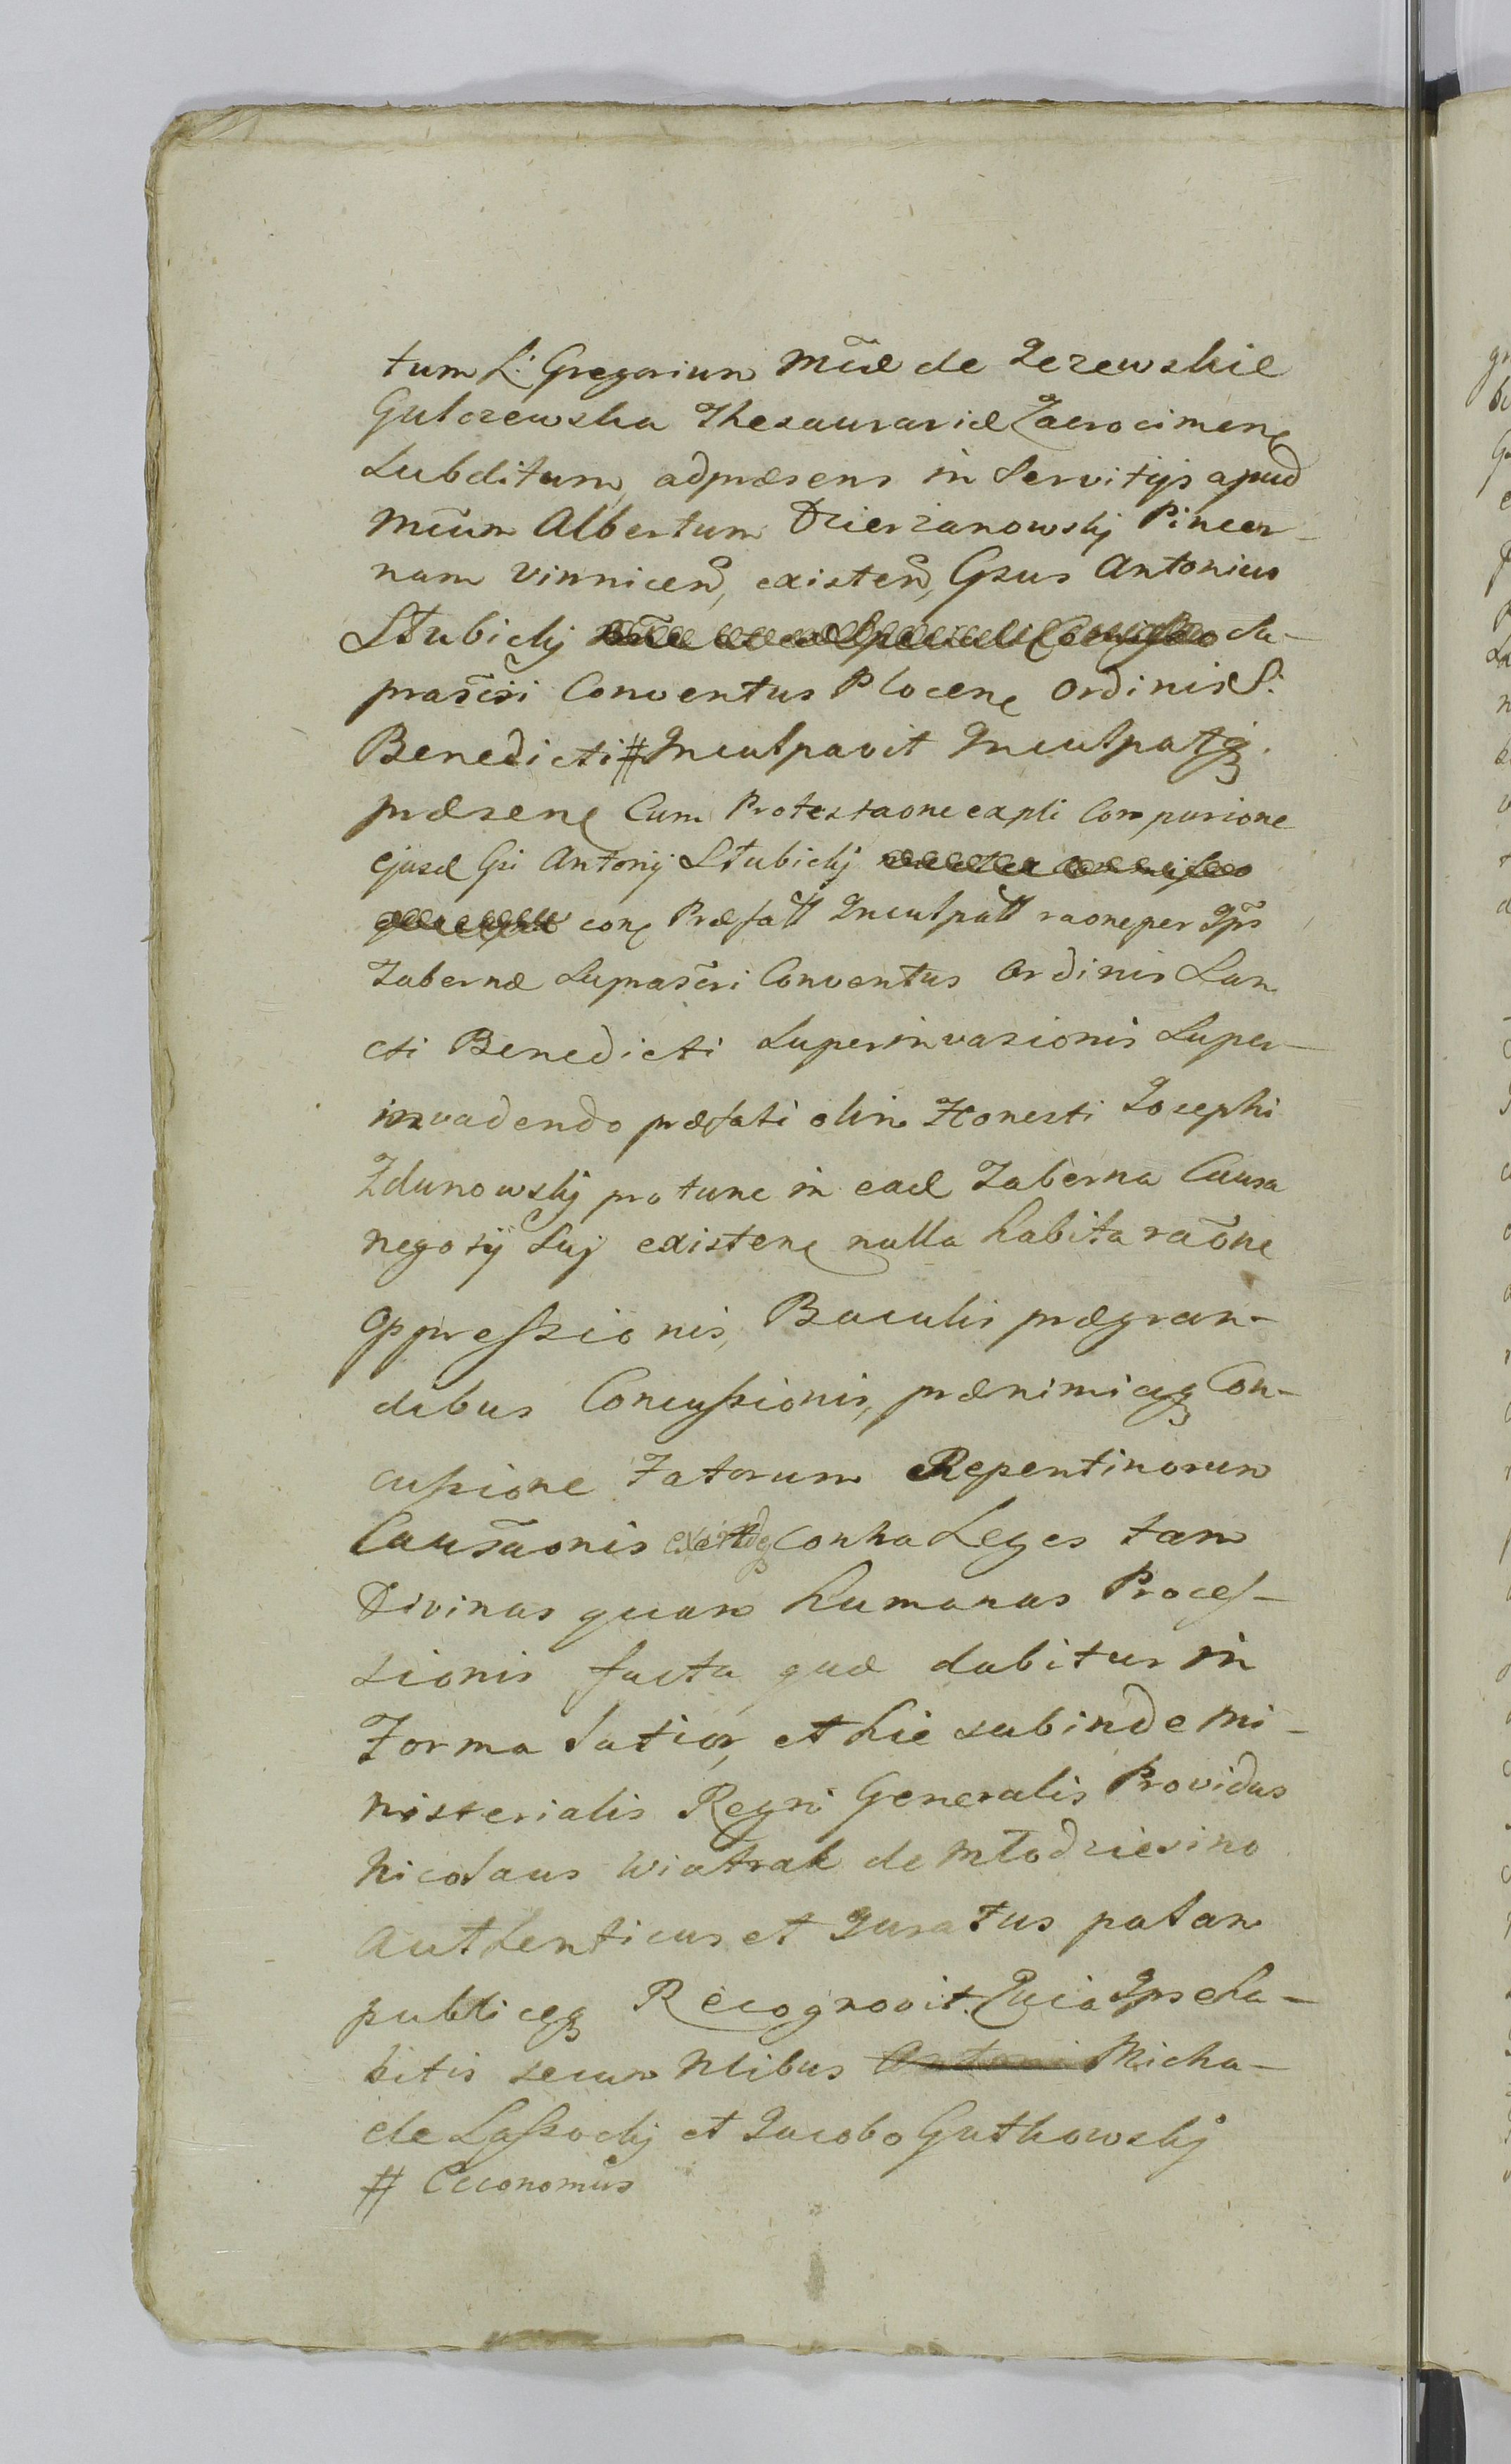 tum S. Gregorium Mcae de Jezewskie
Gulczewska Thesaurariae Zacrocimen
Subditum, adpraesens in Servitijs apud
Mcum Albertum Dzierzanowskj Pincer-
nam Vinnicen, existen, Gsus Antonius
Słubickj Su-
prascri Conventus Plocen Ordinis S.
Benedicti # Inculpavit Inculpatq.
praesen Cum Protestaone expli Comparione
ejusd Gsi Antonij Słubickj
con Praefatt Inculpatt raone per Ips
Tabernae Suprascri Conventus Ordinis San
cti Benedicti Superinvasionis Super-
invadendo praefati olim Honesti Josephi
Zdunowskj pro tunc in ead Taberna Causa
negotij Suj existen nulla habita raone
Oppressionis, Baculis praegran-
dibus Concussionis, praenimiaq Con-
cussione Fatorum Repentinorum
Causaonis contra Leges tam
Divinas quam humanas Proces-
sionis facta quae dabitur in
Forma latior, et hic subinde Mi-
nisterialis Regni Generalis Providus
Nicolaus Wiatrak de Młodzievino
Authenticus et Juratus palam
publiceq Recognovit. Quia Ipse ha-
bitis secum Nlibus Antoni Micha-
ele Lassockj et Jacobo Gutkowskj
# Oeconomus